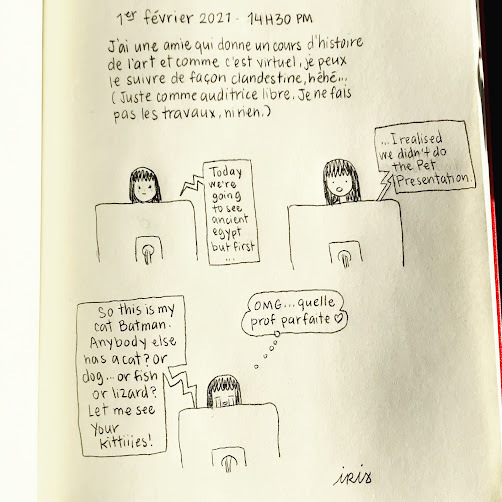 1er février 2021 - 14H30 PM
J'ai une amie qui donne un cours d'histoire
de l'art et comme c'est virtuel, je peux
le suivre de façon clandestine, héhé...
(Juste comme auditrice libre. Je ne fais
pas les travaux, ni rien.)
Today
we're
going
to see
ancient
egypt
but first
...
...I realised
we didn't do
the Pet
Presentation
So this is my
cat Batman.
Anybody else
has a cat? or
dog... or fish
or lizard?
Let me see
your
kittiiies!
OMG... quelle
prof parfaite ♡
iris